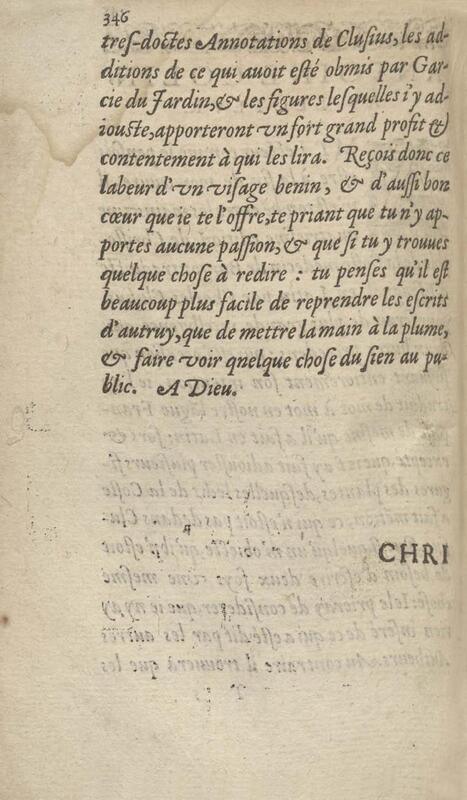 346
tres-doctes Annotations de Clusius, les ad-
ditions de ce qui auoit esté obmis par Gar-
cie du Jardin, & les figures lesquelles i'y ad-
iouste, apporteront vn fort grand profit &
contentement à qui les lira. Reçois donc ce
labeur d'vn visage benin, & d'aussi bon
cœur que ie te l'offre, te priant que tu n'y ap-
portes aucune passion, & que si tu y trouues
quelque chose à redire : tu penses qu'il est
beaucoup plus facile de reprendre les escrits
d'autruy, que de mettre la main à la plume,
& faire voir qnelque chose du sien au pu-
blic. A Dieu.
CHRI